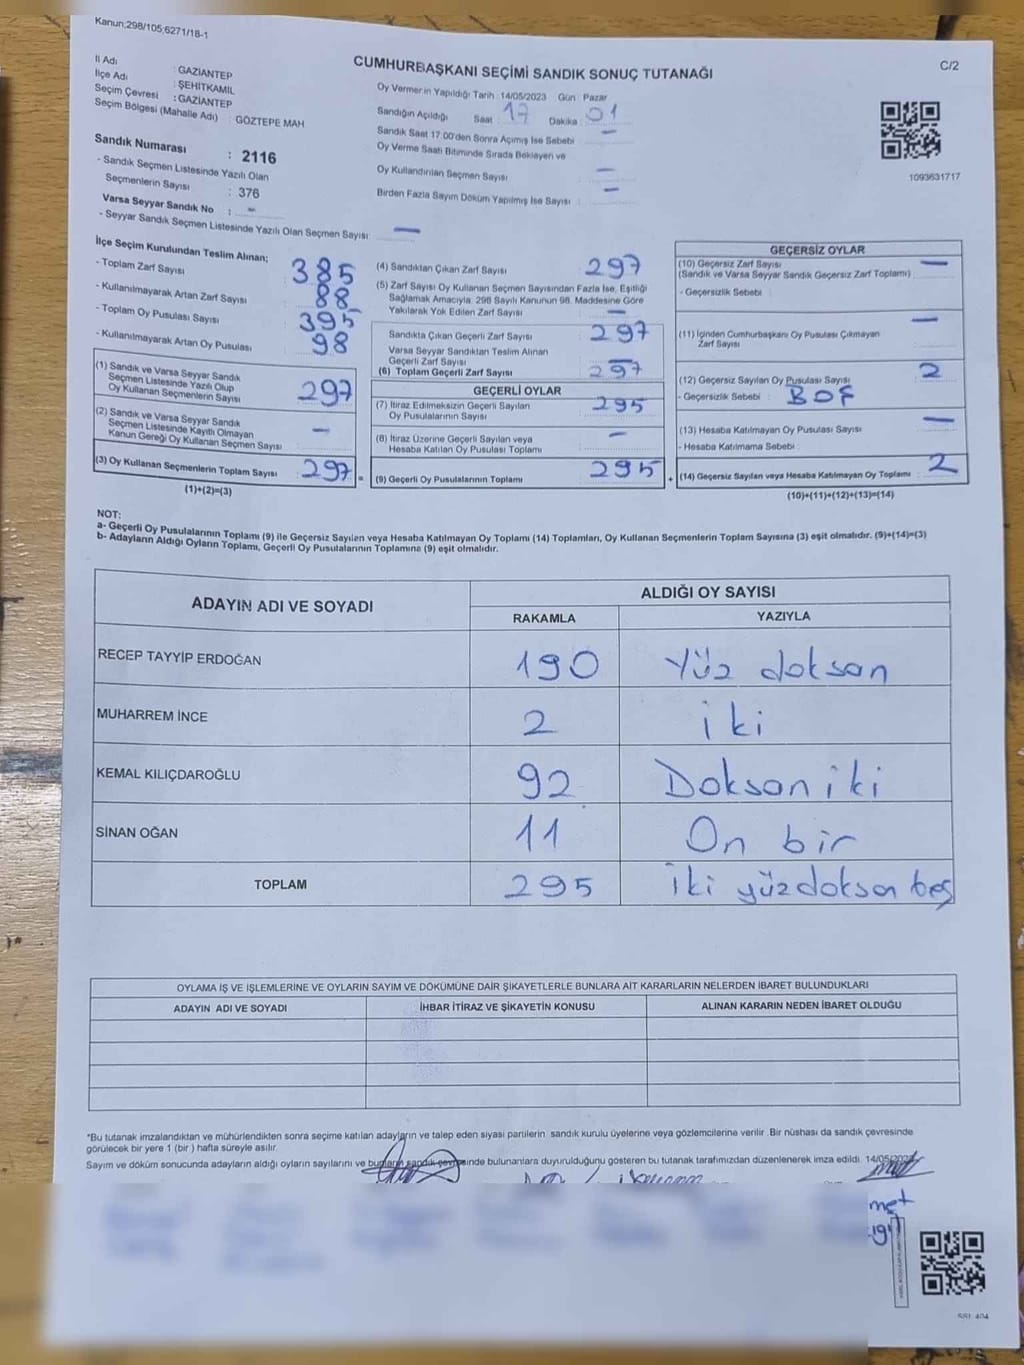 Kanun;298/105;6271/18-1
CUMHURBAŞKANI SEÇİMİ SANDIK SONUÇ TUTANAĞI
C/2
İl Adı : GAZİANTEP
İlçe Adı : ŞEHİTKAMİL
Seçim Çevresi : GAZİANTEP
Seçim Bölgesi (Mahalle Adı) : GÖZTEPE MAH
Sandık Numarası : 2116
- Sandık Seçmen Listesinde Yazılı Olan
Seçmenlerin Sayısı : 376
Varsa Seyyar Sandık No : -
- Seyyar Sandık Seçmen Listesinde Yazılı Olan Seçmen Sayısı —
Oy Vermenin Yapıldığı Tarih : 14/05/2023 Gün : Pazar
Sandığın Açıldığı Saat : 17 Dakika : 01
Sandık Saat 17:00'den Sonra Açımış İse Sebebi —
Oy Verme Saati Bitiminde Sırada Bekleyen ve
Oy Kullandırılan Seçmen Sayısı —
Birden Fazla Sayım Döküm Yapılmış İse Sayısı : —
1093631717
İlçe Seçim Kurulundan Teslim Alınan;
- Toplam Zarf Sayısı 385
- Kullanılmayarak Artan Zarf Sayısı 88
- Toplam Oy Pusulası Sayısı 395
- Kullanılmayarak Artan Oy Pusulası 98
(1) Sandık ve Varsa Seyyar Sandık
Seçmen Listesinde Yazılı Olup
Oy Kullanan Seçmenlerin Sayısı 297
(2) Sandık ve Varsa Seyyar Sandık
Seçmen Listesinde Kayıtlı Olmayan
Kanun Gereği Oy Kullanan Seçmen Sayısı —
(3) Oy Kullanan Seçmenlerin Toplam Sayısı 297 =
(1)+(2)=(3)
(4) Sandıktan Çıkan Zarf Sayısı 297
(5) Zarf Sayısı Oy Kullanan Seçmen Sayısından Fazla İse, Eşitliği
Sağlamak Amacıyla; 298 Sayılı Kanunun 98. Maddesine Göre
Yakılarak Yok Edilen Zarf Sayısı —
Sandıkta Çıkan Geçerli Zarf Sayısı 297
Varsa Seyyar Sandıktan Teslim Alınan
Geçerli Zarf Sayısı —
(6) Toplam Geçerli Zarf Sayısı 297
GEÇERLİ OYLAR
(7) İtiraz Edilmeksizin Geçerli Sayılan
Oy Pusulalarının Sayısı 295
(8) İtiraz Üzerine Geçerli Sayılan veya
Hesaba Katılan Oy Pusulası Toplamı —
(9) Geçerli Oy Pusulalarının Toplamı 295 +
GEÇERSİZ OYLAR
(10) Geçersiz Zarf Sayısı —
(Sandık ve Varsa Seyyar Sandık Geçersiz Zarf Toplamı)
- Geçersizlik Sebebi :
(11) İçinden Cumhurbaşkanı Oy Pusulası Çıkmayan —
Zarf Sayısı
(12) Geçersiz Sayılan Oy Pusulası Sayısı 2
- Geçersizlik Sebebi : BOŞ
(13) Hesaba Katılmayan Oy Pusulası Sayısı —
- Hesaba Katılmama Sebebi :
(14) Geçersiz Sayılan veya Hesaba Katılmayan Oy Toplamı 2
(10)+(11)+(12)+(13)=(14)
NOT:
a- Geçerli Oy Pusulalarının Toplamı (9) ile Geçersiz Sayılan veya Hesaba Katılmayan Oy Toplamı (14) Toplamları, Oy Kullanan Seçmenlerin Toplam Sayısına (3) eşit olmalıdır. (9)+(14)=(3)
b- Adayların Aldığı Oyların Toplamı, Geçerli Oy Pusulalarının Toplamına (9) eşit olmalıdır.
ADAYIN ADI VE SOYADI ALDIĞI OY SAYISI
RAKAMLA YAZIYLA
RECEP TAYYİP ERDOĞAN 190 Yüz doksan
MUHARREM İNCE 2 iki
KEMAL KILIÇDAROĞLU 92 Doksan iki
SİNAN OĞAN 11 On bir
TOPLAM 295 İki yüzdoksan beş
OYLAMA İŞ VE İŞLEMLERİNE VE OYLARIN SAYIM VE DÖKÜMÜNE DAİR ŞİKAYETLERLE BUNLARA AİT KARARLARIN NELERDEN İBARET BULUNDUKLARI
ADAYIN ADI VE SOYADI İHBAR İTİRAZ VE ŞİKAYETİN KONUSU ALINAN KARARIN NEDEN İBARET OLDUĞU
*Bu tutanak imzalandıktan ve mühürlendikten sonra seçime katılan adayların ve talep eden siyasi partilerin sandık kurulu üyelerine veya gözlemcilerine verilir. Bir nüshası da sandık çevresinde
görülecek bir yere 1 (bir ) hafta süreyle asılır.
Sayım ve döküm sonucunda adayların aldığı oyların sayılarını ve bunların sandık çevresinde bulunanlara duyurulduğunu gösteren bu tutanak tarafımızdan düzenlenerek imza edildi. 14/05/2023